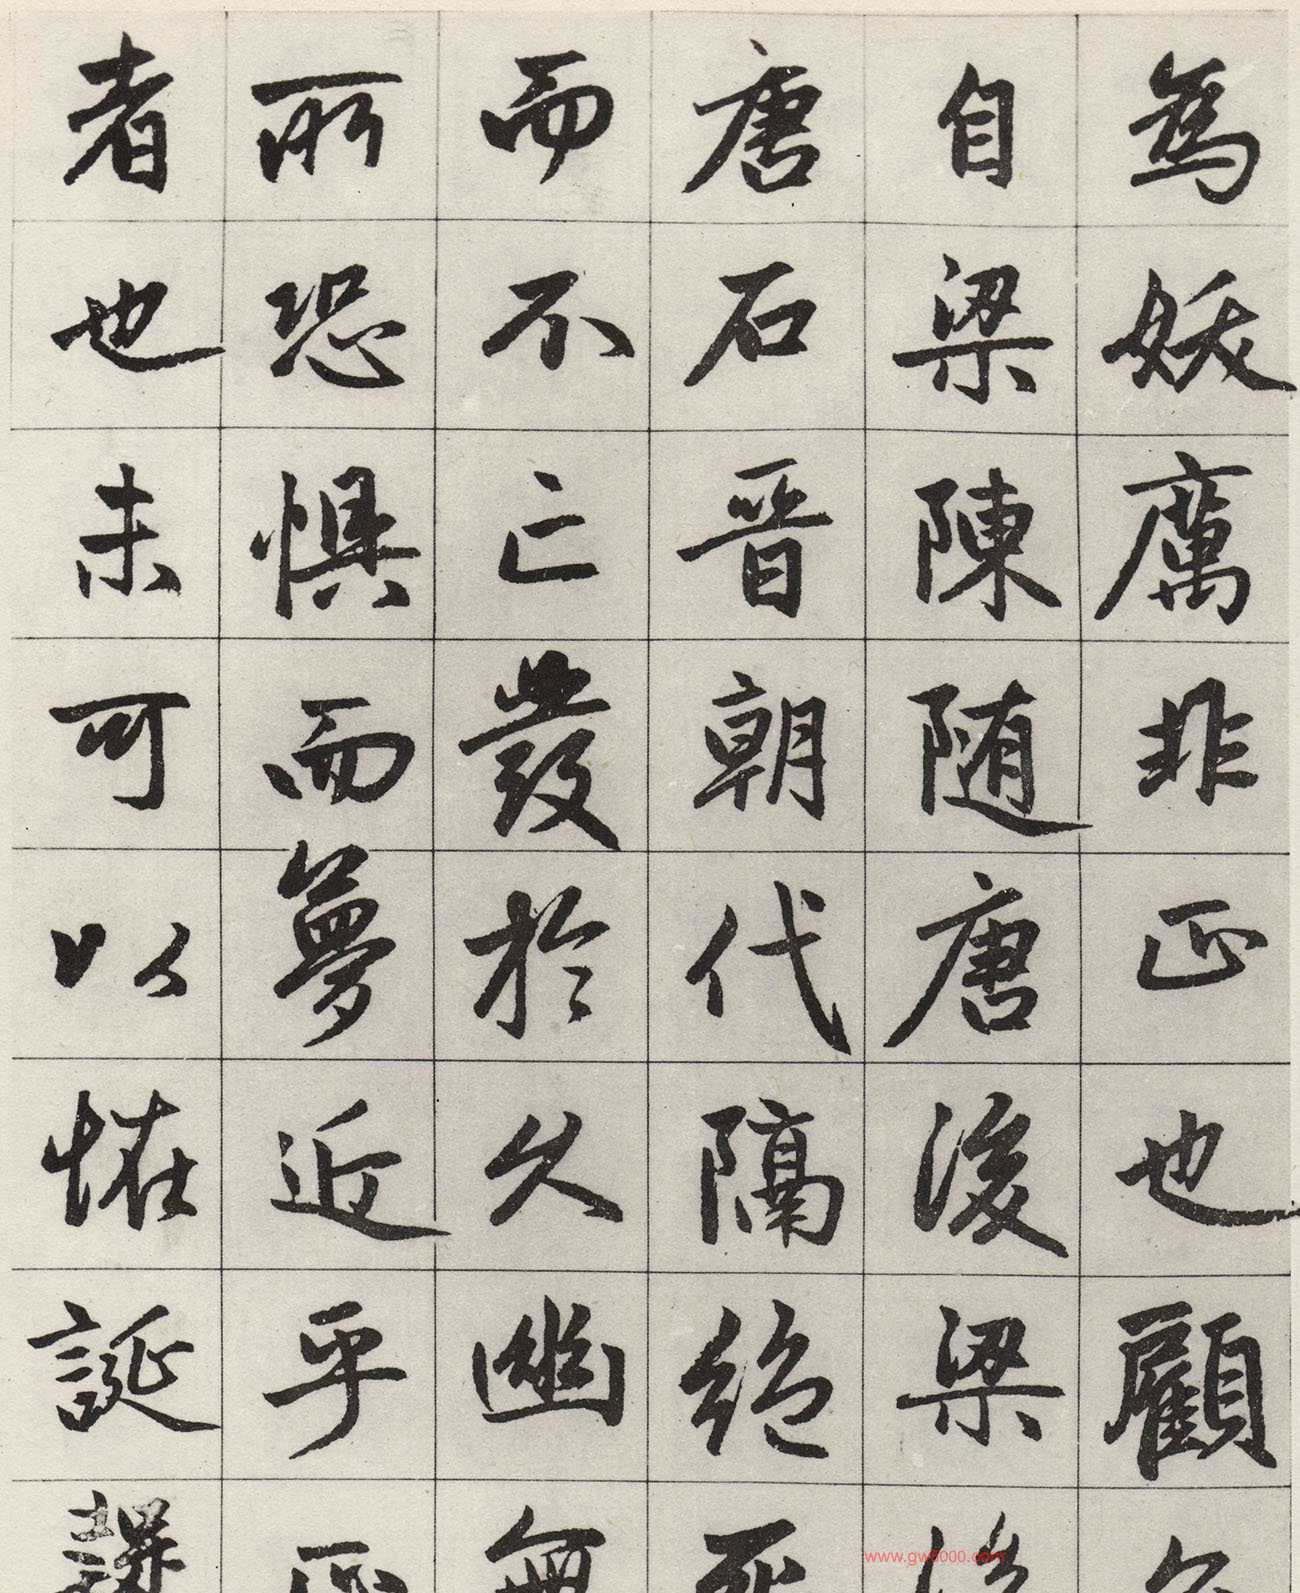 為妖厲非正也顧
自梁陳随唐後梁後
唐石晉朝代隔絶死
而不亡發於久幽無
所恐懼而夢近乎正
者也未可以恠誕謀
www.gw5000.com